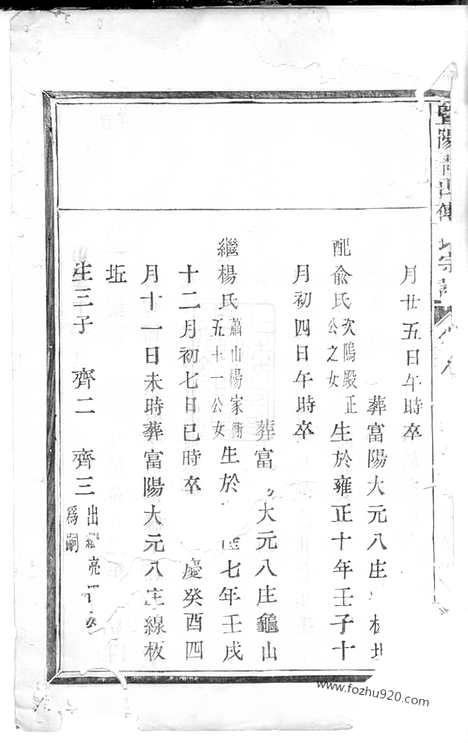 暨陽青山傅氏宗譜
月廿五日午時卒
葬富陽大元八庄 板坵
配俞氏 次塢殿正公之女 生於雍正十年壬子十
月初四日午時卒
葬富 大元八庄龜山
繼楊氏 蕭山楊家衕五十一公女 生於 隆七年壬戌
十二月初七日巳時卒 慶癸酉四
月十一日未時葬富陽大元八庄線板
坵
生三子 齊二 齊三 出繼亮 為嗣
www.fozhu920.com